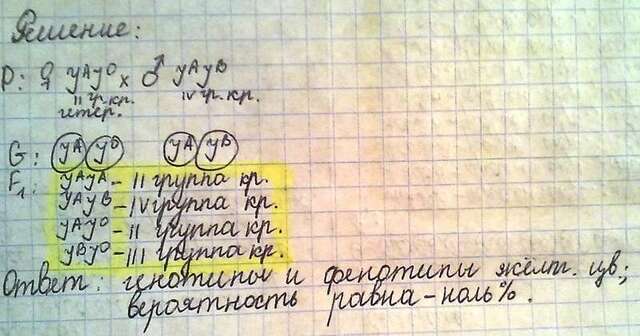 Решение:
P: ♀ JᴬJᴼ x ♂ JᴬJᴮ
II гр.кр. IV гр.кр.
гетер.
G: Jᴬ Jᴼ Jᴬ Jᴮ
F₁: JᴬJᴬ - II группа кр.
JᴬJᴮ - IV группа кр.
JᴬJᴼ - II группа кр.
JᴮJᴼ - III группа кр.
Ответ: генотипы и фенотипы жёлт. цв;
вероятность равна - ноль%.